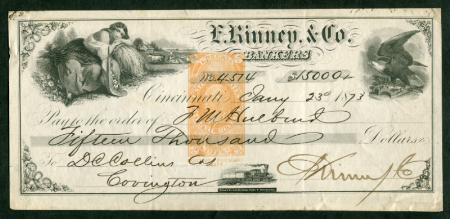 E. Kinney, & Co.
BANKERS
No. 4574 $15000
Cincinnati Jany 23d 1873
Pay to the order of F. M. Hulburd
Fifteen Thousand Dollars
To D C Collins Cas
Covington Kinney & Co